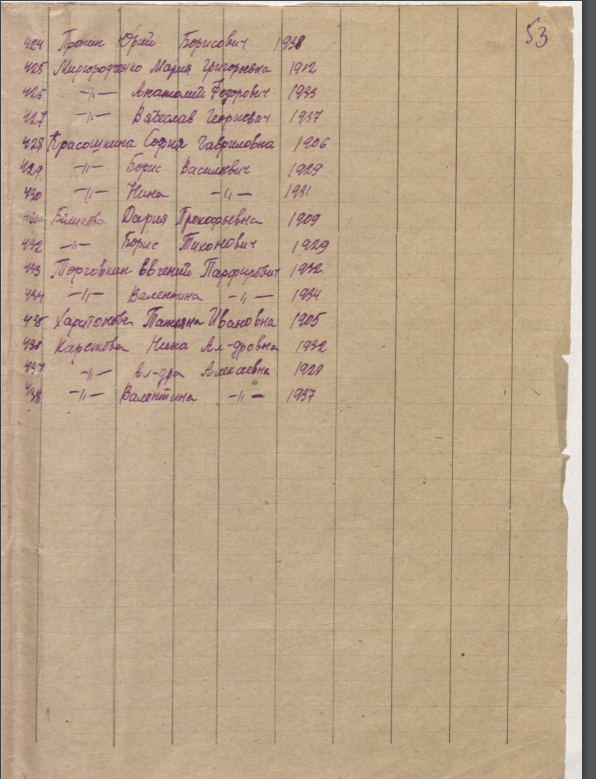 53
424 Пронин Юрий Борисович 1938
425 Миргородченко Мария Григорьевна 1902
426 —"— Анатолий Федорович 1933
427 —"— Вячеслав Георгиевич 1937
428 Красошкина София Гавриловна 1906
429 —"— Борис Василиевич 1929
430 —"— Нина —"— 1931
Дария Прокофьевна 1909
432 —"— Борис Тихонович 1929
433 Торговкин Евгений Парфирович 1932
434 —"— Валентина —"— 1934
435 Харитонова Татьяна Ивановна 1905
Нина Ал-дровна 1932
437 —"— Ал-дра Алексеевна 1929
438 —"— Валентина —"— 1937